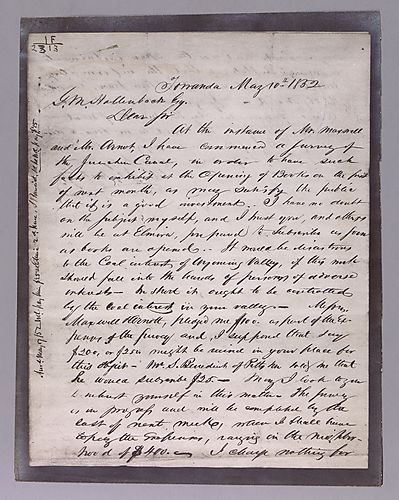 1F
2 3 13
Towanda May 10th 1852
G. M. Hollenback Esq.
Dear Sir
At the instance of Mr. Maxwell
and Mr. Arnot, I have commenced a survey of
the Junction Canal, in order to have such
facts to exhibit at the Opening of Books on the first
of next month, as may satisfy the public
that it is a good investment. I have no doubt
on the subject myself, and I trust you, and others
will be at Elmira, prepared to subscribe as soon
as books are opened. It would be disastrous
to the Coal interests of Wyoming Valley, if this work
should fall into the hands of persons of adverse
interests. In short it ought to be controlled
by the coal interest in your valley. Messrs
Maxwell & Arnott, pledged me $100. as part of the ex-
penses of the survey and, I supposed that say
$200, or $250 might be raised in your place for
this object. Mr. S. Benedict of Pittston told me that
he would subscribe $25. Now I look to you
to interest yourself in this matter. The survey
is in progress and will be completed by the
last of next week, when I shall have
to pay the Engineers, ranging in the neighbor-
hood of $400. I charge nothing for